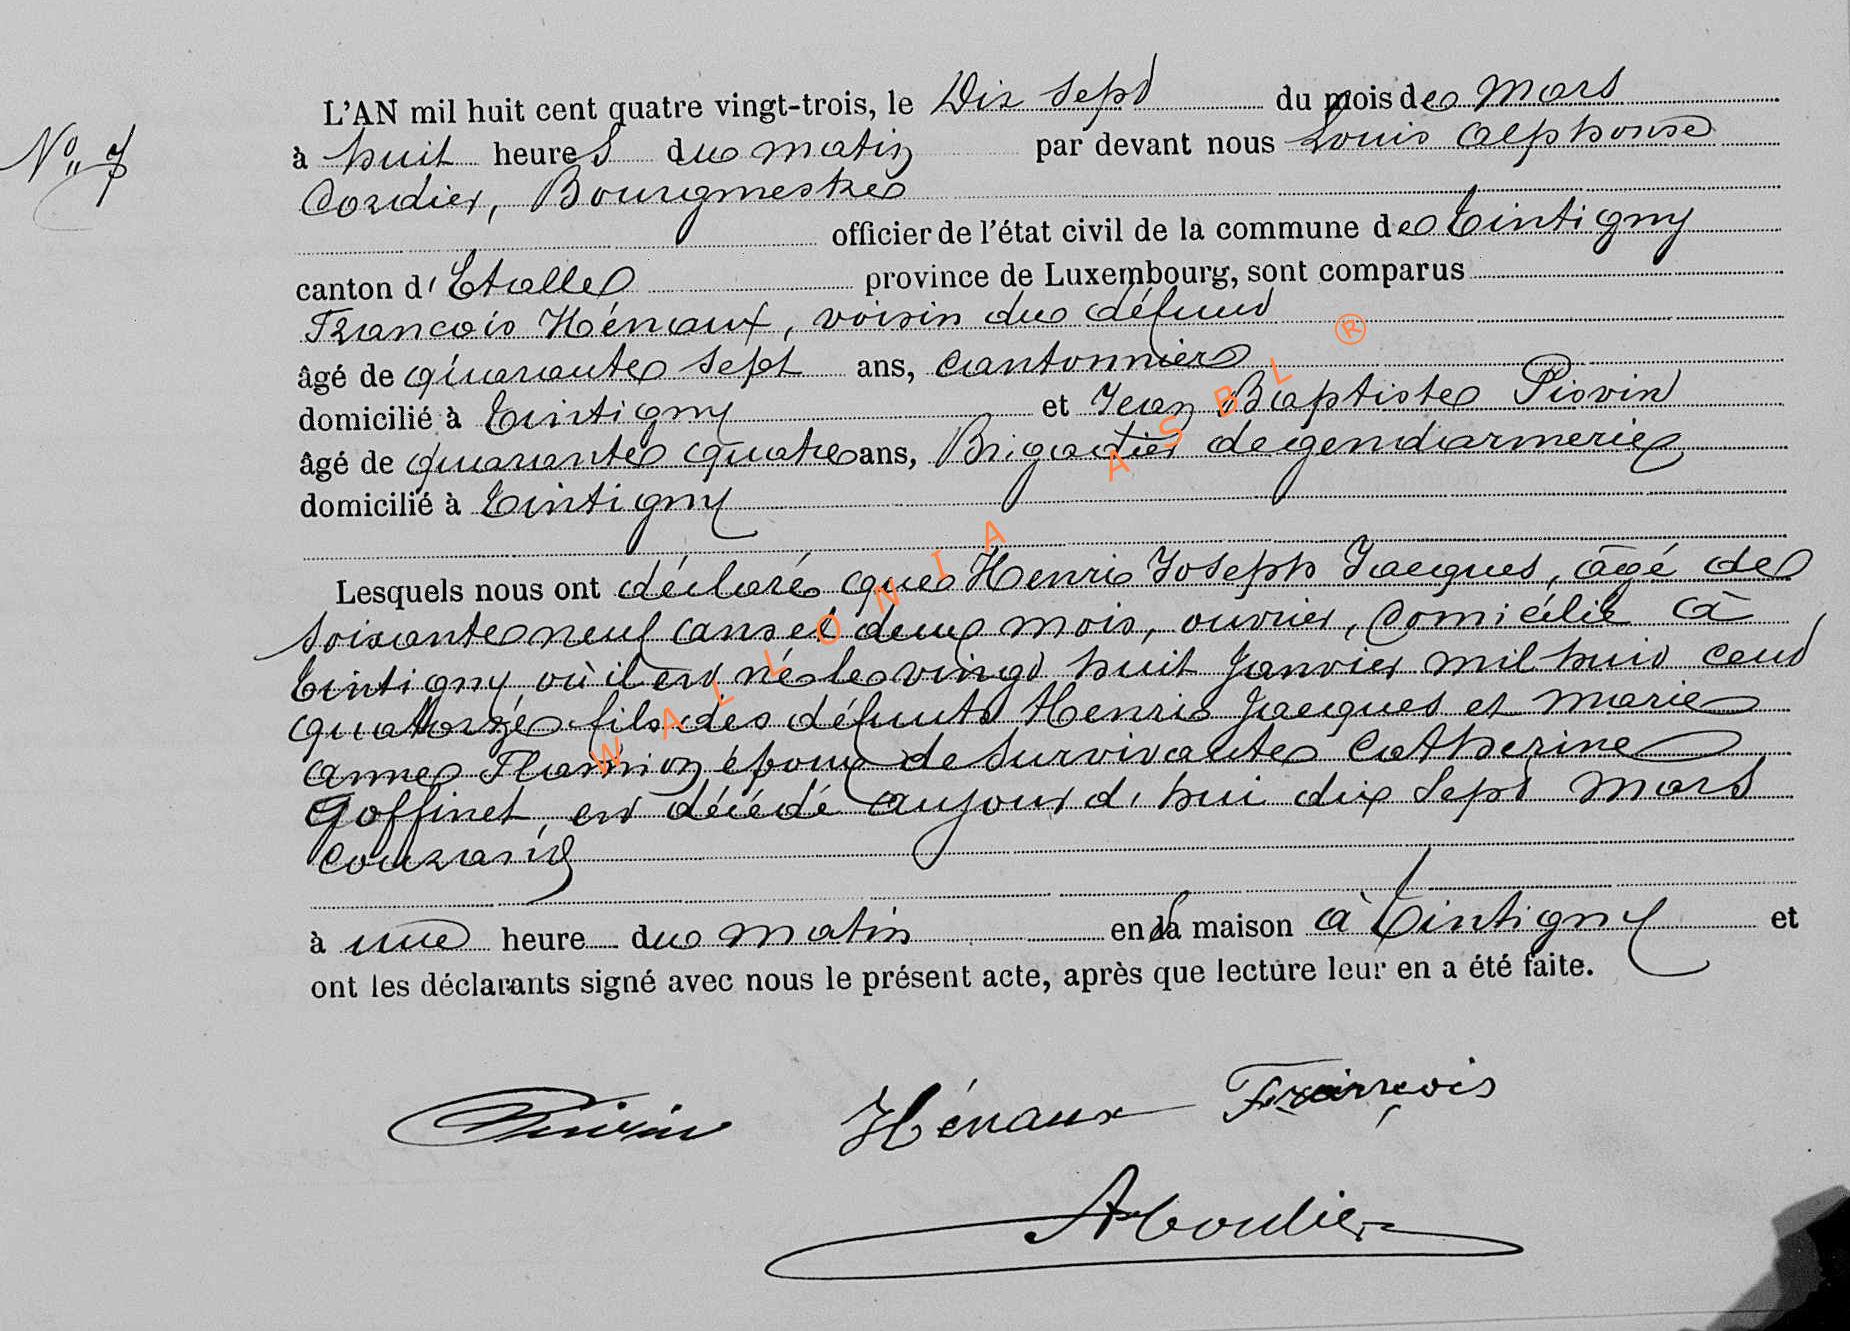 L'AN mil huit cent quatre vingt-trois, le Dix sept du mois de Mars
N° 7
à huit heures du matin par devant nous Louis Alphonse
Cordier, Bourgmestre
officier de l'état civil de la commune de Tintigny
canton d'Etalle province de Luxembourg, sont comparus
François Hénaux, voisin du défunt
âgé de quarante sept ans, cantonnier
domicilié à Tintigny et Jean Baptiste Piovin
âgé de quarante quatre ans, Brigadier de gendarmerie
domicilié à Tintigny
Lesquels nous ont déclaré que Henri Joseph Jacques, âgé de
soixante neuf ans et deux mois, ouvrier, domicilié à
Tintigny où il est né le vingt huit Janvier mil huit cent
quatorze fils des défunts Henri Jacques et Marie
anne époux de survivante Catherine
Goffinet, est décédé aujourd'hui dix sept Mars
courant
à une heure du matin en la maison à Tintigny et
ont les déclarants signé avec nous le présent acte, après que lecture leur en a été faite.
Hénaux François
ACordier
WALLONIA ASBL ®